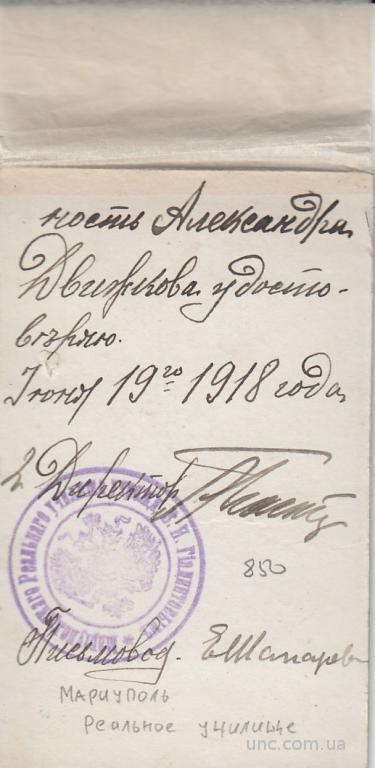 ность Александра
Движкова удосто-
вѣряю.
Іюня 19го 1918 года
Директор
850
Письмовод. Е Шапарев
Мариуполь
Реальное училище
unc.com.ua